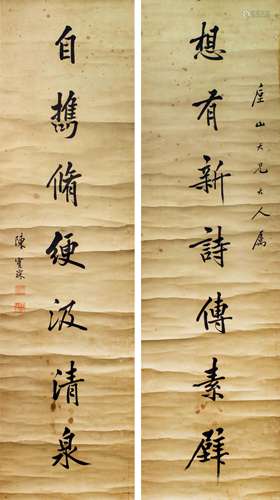 想有新詩傳素壁
山大兄大人属
自攜脩綆汲清泉
陳寶琛